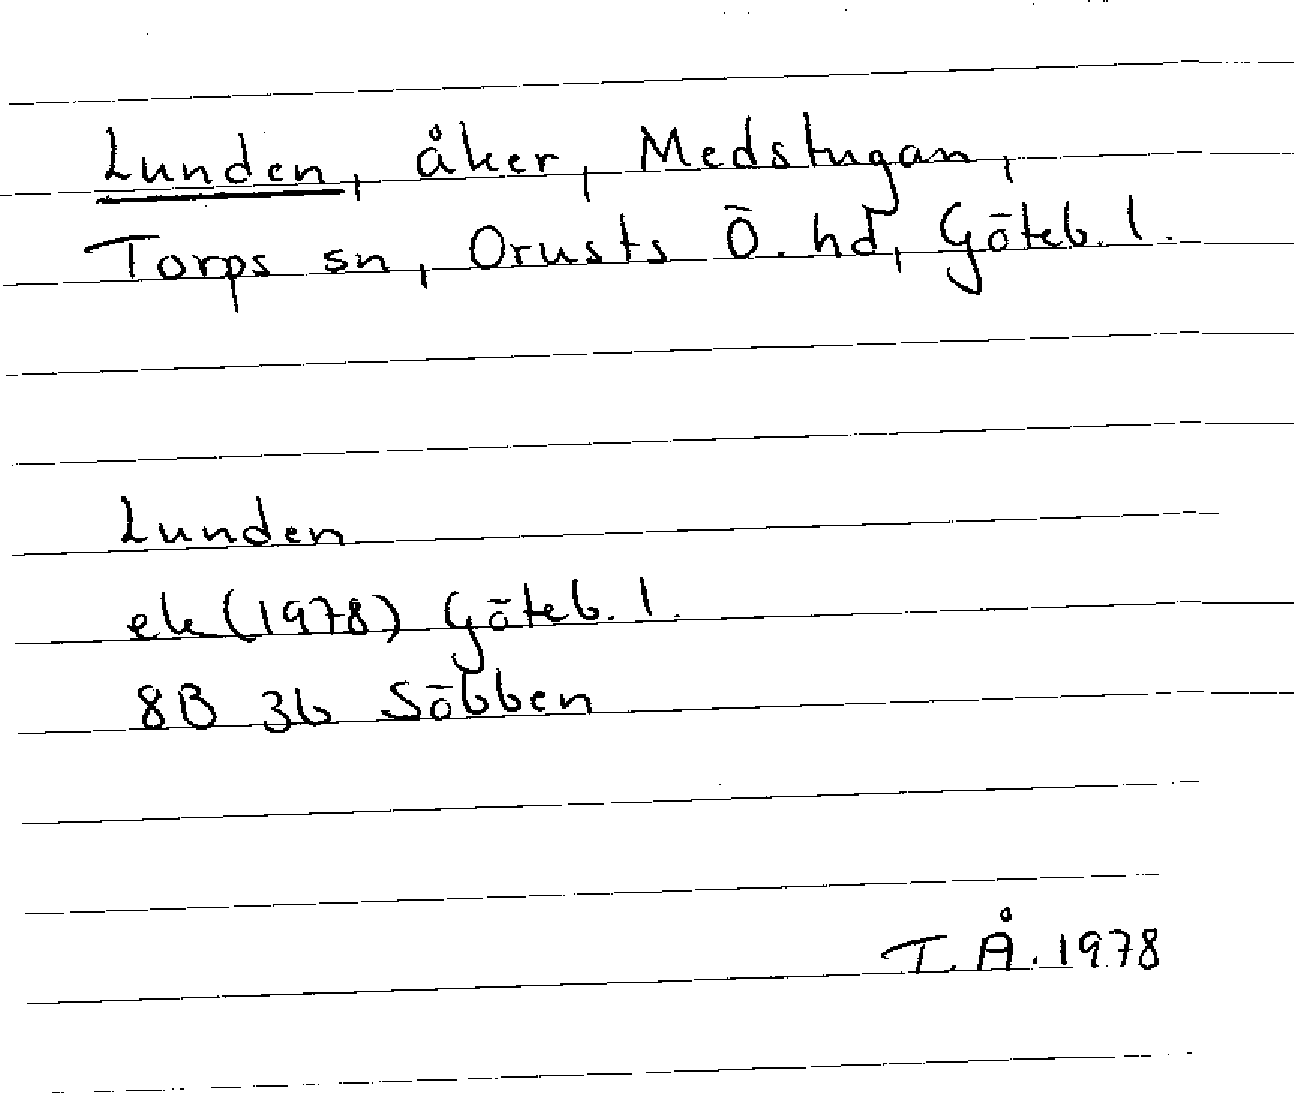 Lunden, åker, Medstugan,
Torps sn, Orusts Ö. hd, Göteb. l.
Lunden
ek (1978) Göteb. l.
8B 3b Söbben
I.Å. 1978